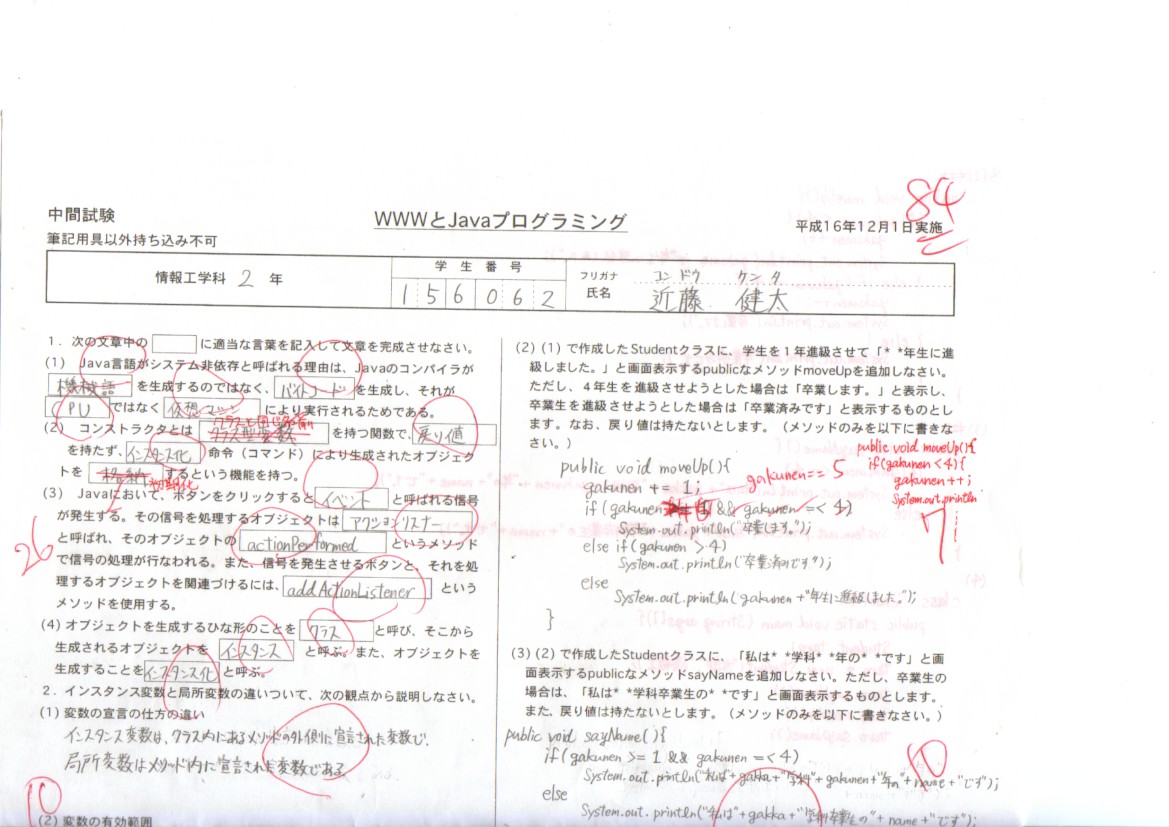 84
中間試験
WWWとJavaプログラミング
平成16年12月1日実施
筆記用具以外持ち込み不可
情報工学科 2 年
学生番号
156062
フリガナ コンドウ ケンタ
氏名 近藤 健太
1．次の文章中の に適当な言葉を記入して文章を完成させなさい。
(1) Java言語がシステム非依存と呼ばれる理由は、Javaのコンパイラが
機械語 を生成するのではなく、バイトコード を生成し、それが
CPU ではなく 仮想マシン により実行されるためである。
クラスと同じ名前
(2) コンストラクタとは クラス型変数 を持つ関数で、戻り値
を持たず、インスタンス化 命令（コマンド）により生成されたオブジェク
トを 格納 するという機能を持つ。
初期化
(3) Javaにおいて、ボタンをクリックすると イベント と呼ばれる信号
が発生する。その信号を処理するオブジェクトは アクションリスナー
と呼ばれ、そのオブジェクトの actionPerformed というメソッド
で信号の処理が行なわれる。また、信号を発生させるボタンと、それを処
理するオブジェクトを関連づけるには、addActionListener という
メソッドを使用する。
26
(4) オブジェクトを生成するひな形のことを クラス と呼び、そこから
生成されるオブジェクトを インスタンス と呼ぶ。また、オブジェクトを
生成することを インスタンス化 と呼ぶ。
2．インスタンス変数と局所変数の違いついて、次の観点から説明しなさい。
(1) 変数の宣言の仕方の違い
インスタンス変数は、クラス内にあるメソッドの外側に宣言された変数で、
局所変数はメソッド内に宣言された変数である
10
(2) 変数の有効範囲
(2) (1) で作成したStudentクラスに、学生を１年進級させて「＊＊年生に進
級しました。」と画面表示するpublicなメソッドmoveUpを追加しなさい。
ただし、４年生を進級させようとした場合は「卒業します。」と表示し、
卒業生を進級させようとした場合は「卒業済みです」と表示するものとし
ます。なお、戻り値は持たないとします。（メソッドのみを以下に書きな
さい。）
public void moveUp(){
gakunen += 1;
if (gakunen && gakunen =< 4)
System.out.println("卒業します。");
else if(gakunen > 4)
System.out.println("卒業済みです");
else
System.out.println(gakunen+"年生に進級しました。");
}
gakunen == 5
public void moveUp(){
if(gakunen < 4){
gakunen++;
System.out.println
7
(3) (2) で作成したStudentクラスに、「私は＊＊学科＊＊年の＊＊です」と画
面表示するpublicなメソッドsayNameを追加しなさい。ただし、卒業生の
場合は、「私は＊＊学科卒業生の＊＊です」と画面表示するものとします。
また、戻り値は持たないとします。（メソッドのみを以下に書きなさい。）
public void sayName(){
if(gakunen >= 1 && gakunen =< 4)
System.out.println("私は"+gakka+"学科"+gakunen+"年の"+name+"です");
else
System.out.println("私は"+gakka+"学科卒業生の"+name+"です");
10